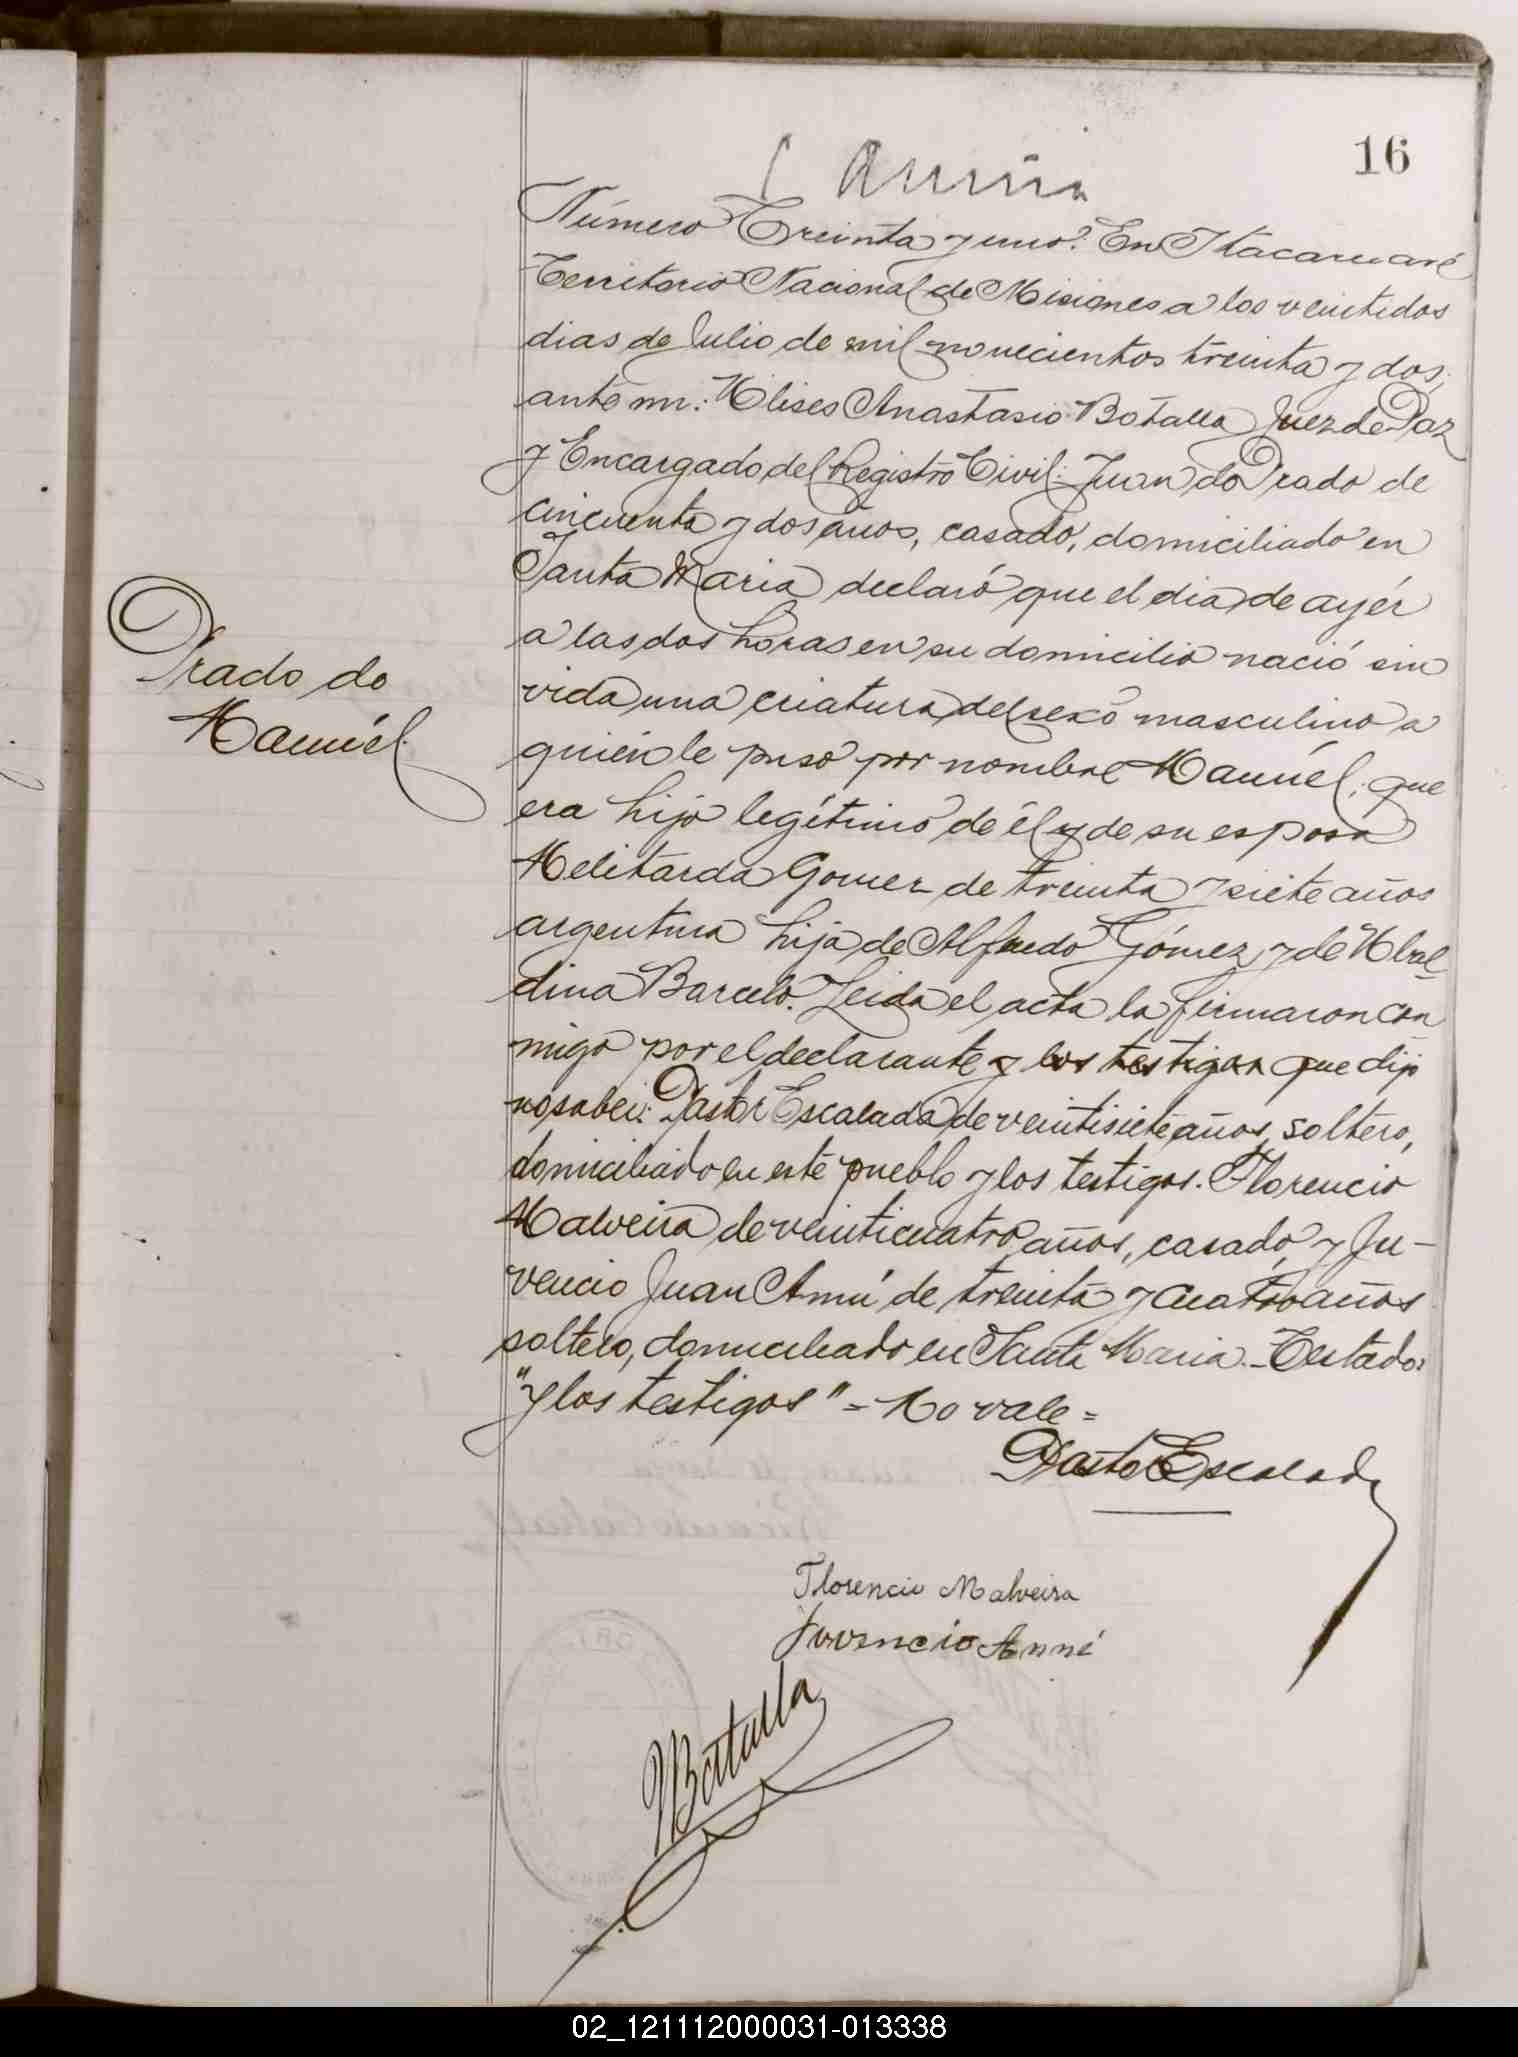 16
Número Treinta y uno. En Itacaruaré
Territorio Nacional de Misiones a los veintidos
dias de Julio de mil novecientos treinta y dos,
ante mi: Ulises Anastasio Batalla Juez de Paz
y Encargado del Registro Civil: Juan do Prado de
cincuenta y dos años, casado, domiciliado en
Santa Maria declaró que el dia de ayér
a las dos horas en su domicilio nació sin
vida una criatura del sexo masculino a
quién le puso por nombre Manuél, que
era hijo legítimo de él y de su esposa
Melitarda Gomez de treinta y siete años
argentina hija de Alfredo Gómez y de Ubal-
dina Barceló. Leida el acta la firmaron con
migo por el declarante y los testigos que dijo
no saber: Pastor Escalada de veintisiete años, soltero,
domiciliado en este pueblo y los testigos. Florencio
Malveira de veinticuatro años, casado, y Ju-
vencio Juan Anné de treinta y cuatro años
soltero, domiciliado en Santa Maria.- Testado:
"y los testigos" = No vale =
Prado do
Manuél.
Pastor Escalada
Florencio Malveira
Juvencio Anné
Batalla
02_121112000031-013338